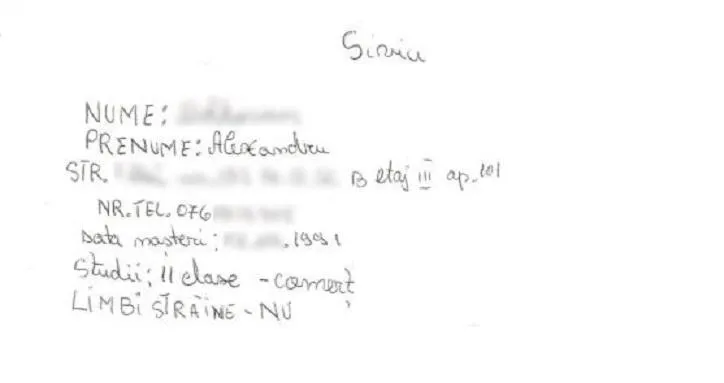 Siviu
NUME:
PRENUME: Alexandru
STR. B etaj III ap. 101
NR. TEL. 076
Data nașteri: .1991
Studii: 11 clase - comerț
LIMBI STRĂINE - NU